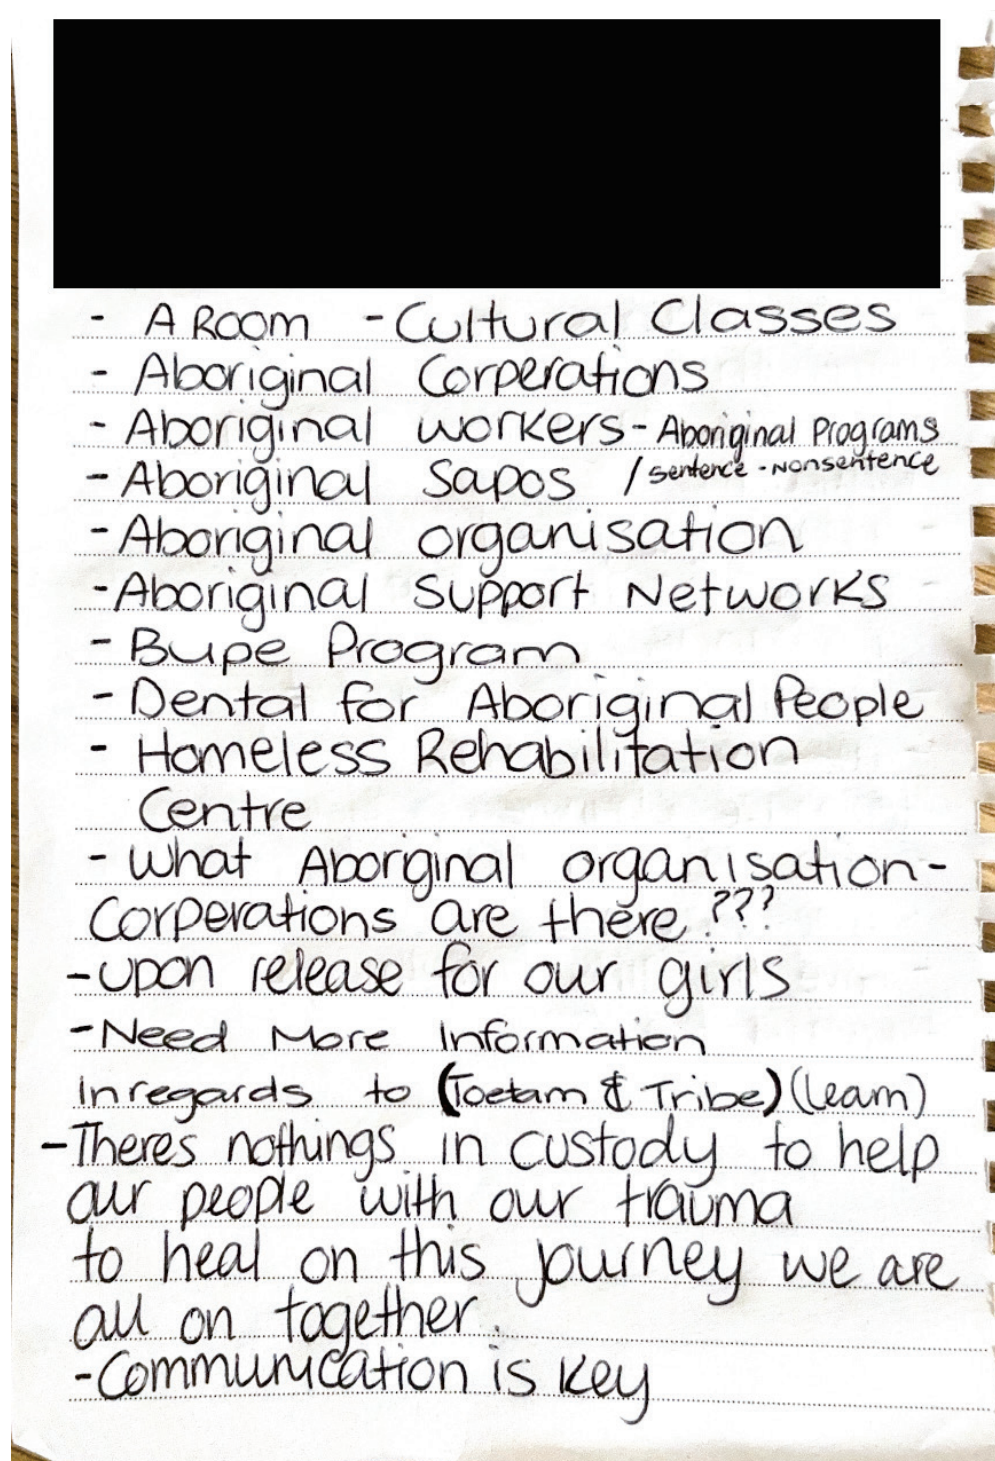 - A Room - Cultural Classes
- Aboriginal Corperations
- Aboriginal workers - Aboriginal Programs
- Aboriginal Sapos / sentence - nonsentence
- Aboriginal organisation
- Aboriginal Support Networks
- Bupe Program
- Dental for Aboriginal People
- Homeless Rehabilitation
Centre
- What Aborginal organisation -
Corperations are there ???
- upon release for our girls
- Need More Information
Inregards to (Toetam & Tribe) (learn)
- Theres nothings in custody to help
our people with our trauma
to heal on this journey we are
all on together.
- Communication is Key